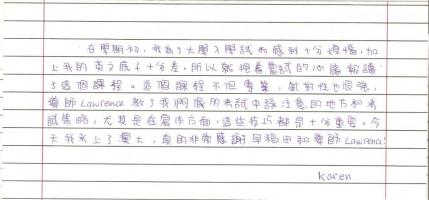 在學期初,我為了大學入學試而感到十分煩惱,加
上我的英文底子十分差。所以就抱着嘗試的心態報讀
了這個課程。這個課程不但專業,針對性也很強,
導師Lawrence教了我們很多考試中該注意的地方和考
試策略,尤其是在寫作方面,這些技巧都是十分重要。今
天我考上了澳大,真的非常感謝早稻田和導師Lawrence!
karen